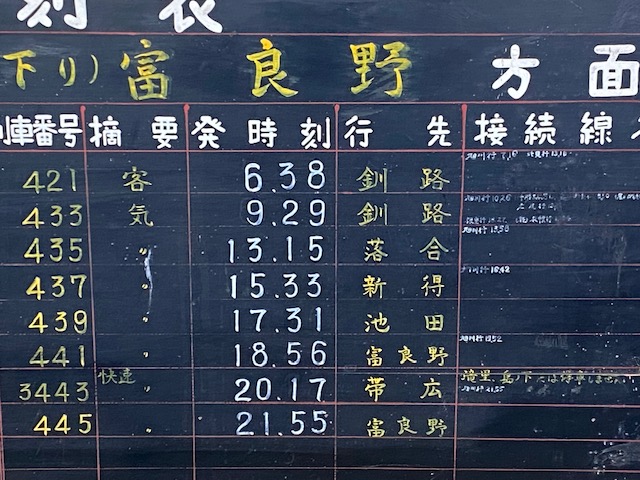 刻表
下り) 富良野 方面
列車番号 摘要 発時刻 行先 接続線
421 客 6.38 釧路
433 気 9.29 釧路
435 〃 13.15 落合
437 〃 15.33 新得
439 〃 17.31 池田
441 〃 18.56 富良野
3443 快速 〃 20.17 帯広 滝里、島ノ下には停車しません
445 〃 21.55 富良野